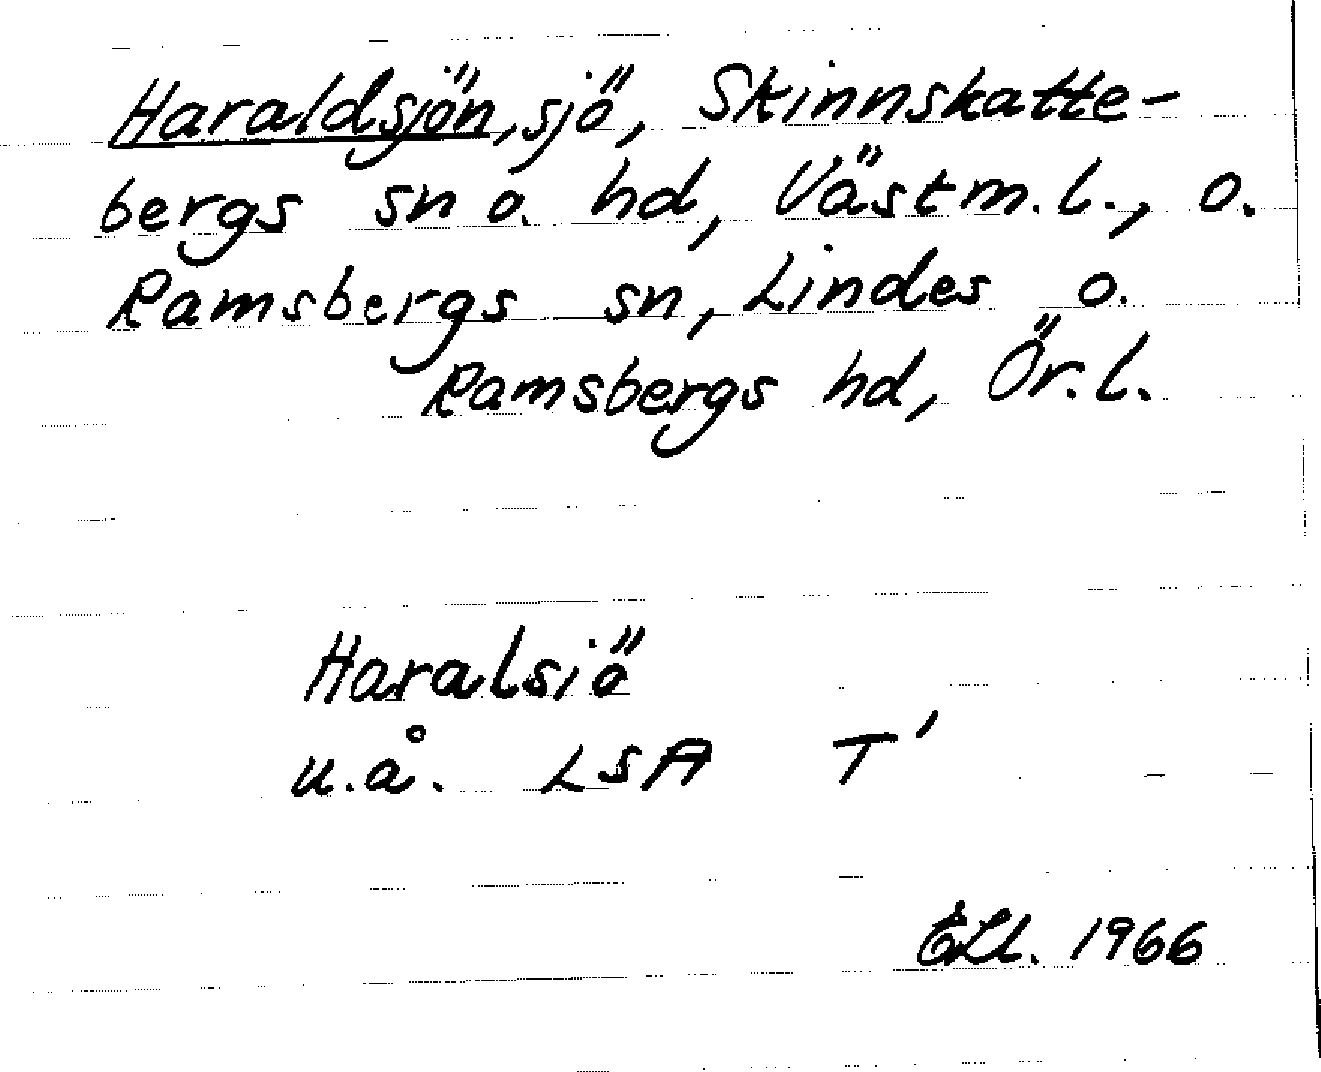 Haraldsjön, sjö, Skinnskatte-
bergs sn o. hd, Västm.l., o.
Ramsbergs sn, Lindes o.
Ramsbergs hd, Ör.l.
Haralsiö
u.å. LSA T'
1966